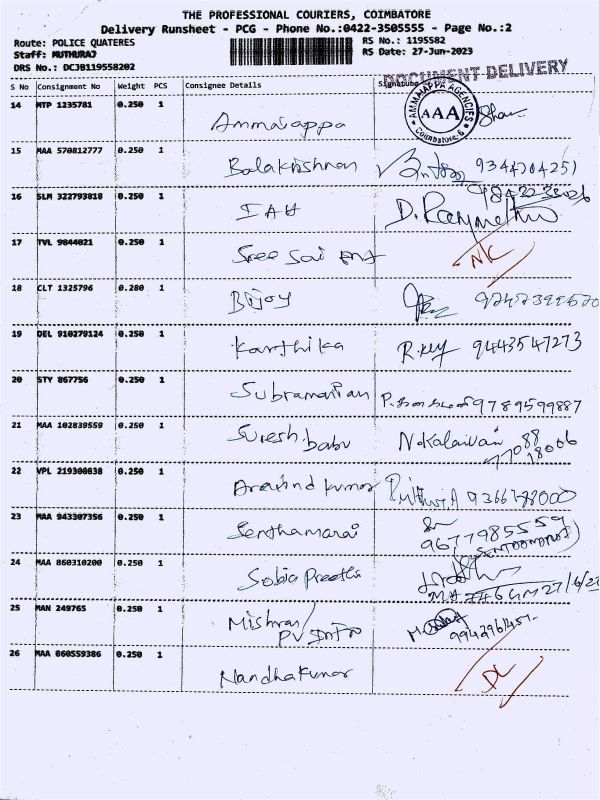 THE PROFESSIONAL COURIERS, COIMBATORE
Delivery Runsheet - PCG - Phone No.:0422-3505555 - Page No.:2
Route: POLICE QUATERES RS No.: 1195582
Staff: MUTHURAJ RS Date: 27-Jun-2023
DRS No.: DCJB119558202
DOCUMENT DELIVERY
S No Consignment No Weight PCS Consignee Details Signature
AMMAIAPPA AGENCIES
AAA
Coimbatore-6
14 MTP 1235781 0.250 1 Ammaiappa
15 MAA 570812777 0.250 1 Balakrishnan 9344204251
16 SLM 322793818 0.250 1 IAH
17 TVL 9844021 0.250 1 Sree Sai Ent NC
18 CLT 1325796 0.280 1 Bijoy
19 DEL 910279124 0.250 1 Karthika 9443547273
20 STY 867756 0.250 1 Subramanian 9789599887
21 MAA 102839559 0.250 1 Suresh babu N.Kalaivani
77088
18006
22 VPL 219300838 0.250 1 Aravind kumar
23 MAA 943307356 0.250 1 Senthamarai
9677985559
24 MAA 860310200 0.250 1 Sobia Preethi
25 MAN 249765 0.250 1 Mishran/
PV
26 MAA 860559386 0.250 1 Nandhakumar DL